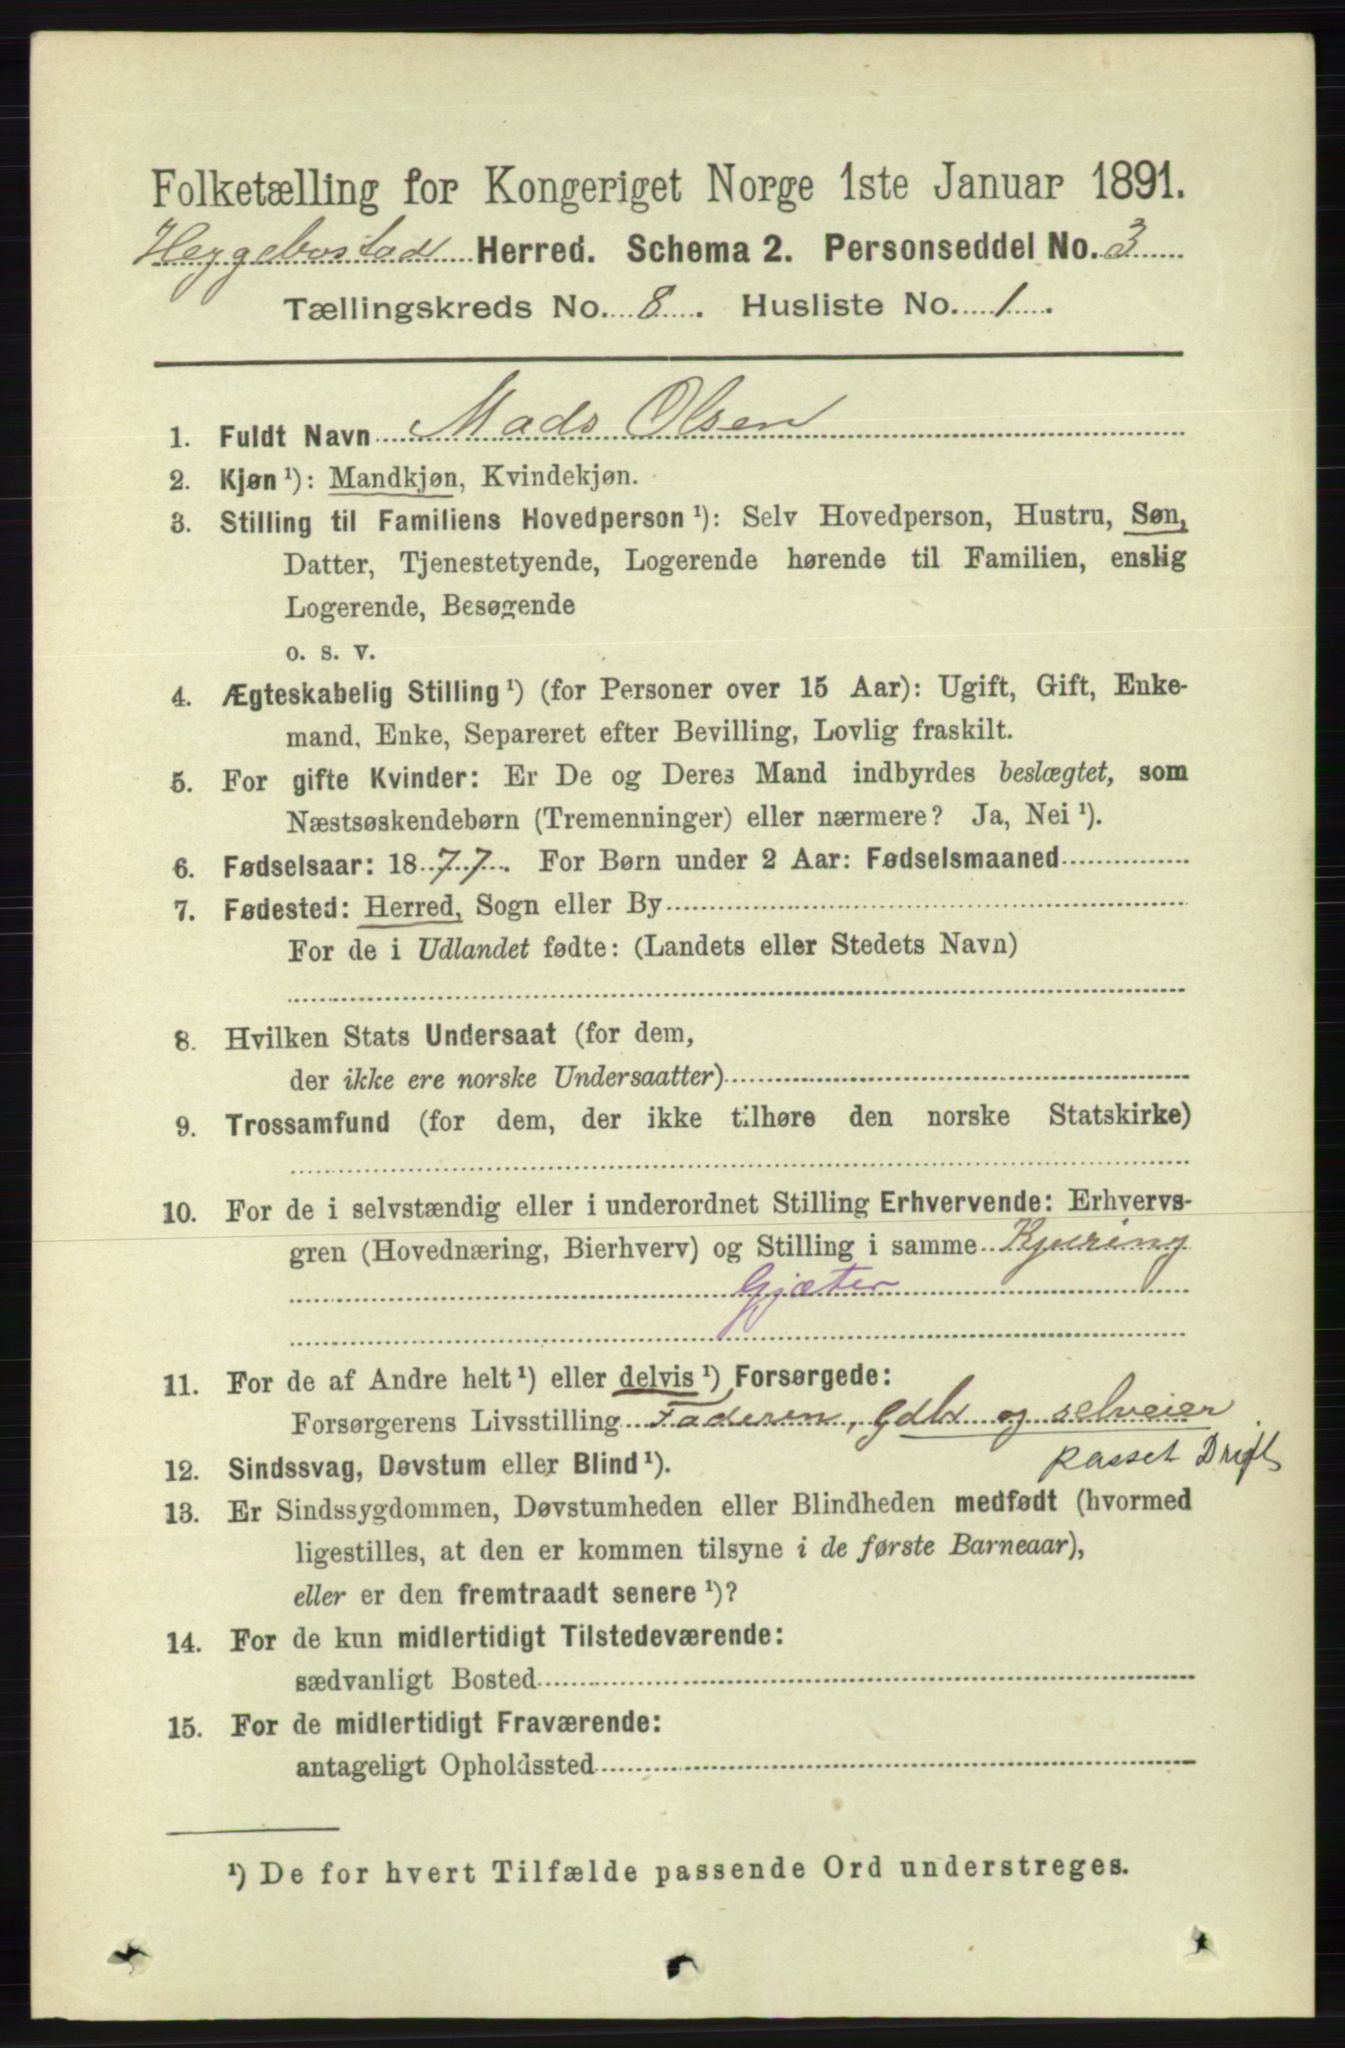 Folketælling for Kongeriget Norge 1ste Januar 1891.
Heggebostad Herred. Schema 2. Personseddel No. 3
Tællingskreds No. 8. Husliste No. 1.
1. Fuldt Navn Mads Olsen
2. Kjøn ¹): Mandkjøn, Kvindekjøn.
3. Stilling til Familiens Hovedperson ¹): Selv Hovedperson, Hustru, Søn,
Datter, Tjenestetyende, Logerende hørende til Familien, enslig
Logerende, Besøgende
o. s. v.
4. Ægteskabelig Stilling ¹) (for Personer over 15 Aar): Ugift, Gift, Enke-
mand, Enke, Separeret efter Bevilling, Lovlig fraskilt.
5. For gifte Kvinder: Er De og Deres Mand indbyrdes beslægtet, som
Næstsøskendebørn (Tremenninger) eller nærmere? Ja, Nei ¹).
6. Fødselsaar: 1877. For Børn under 2 Aar: Fødselsmaaned
7. Fødested: Herred, Sogn eller By
For de i Udlandet fødte: (Landets eller Stedets Navn)
8. Hvilken Stats Undersaat (for dem,
der ikke ere norske Undersaatter)
9. Trossamfund (for dem, der ikke tilhøre den norske Statskirke)
10. For de i selvstændig eller i underordnet Stilling Erhvervende: Erhvervs-
gren (Hovednæring, Bierhverv) og Stilling i samme Kjuring
Gjæter
11. For de af Andre helt ¹) eller delvis ¹) Forsørgede:
Forsørgerens Livsstilling Faderen, Gdbr og selveier
12. Sindssvag, Døvstum eller Blind ¹). Passet Drift
13. Er Sindssygdommen, Døvstumheden eller Blindheden medfødt (hvormed
ligestilles, at den er kommen tilsyne i de første Barneaar),
eller er den fremtraadt senere ¹)?
14. For de kun midlertidigt Tilstedeværende:
sædvanligt Bosted
15. For de midlertidigt Fraværende:
antageligt Opholdssted
¹) De for hvert Tilfælde passende Ord understreges.